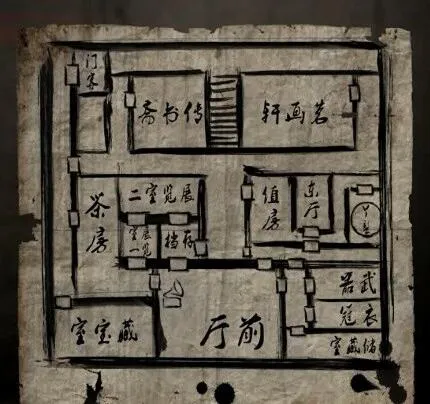 传书斋
茗画轩
茶房
展览室二
展览室一
存档
值房
东厅
武器
衣冠
储藏室
藏宝室
前厅